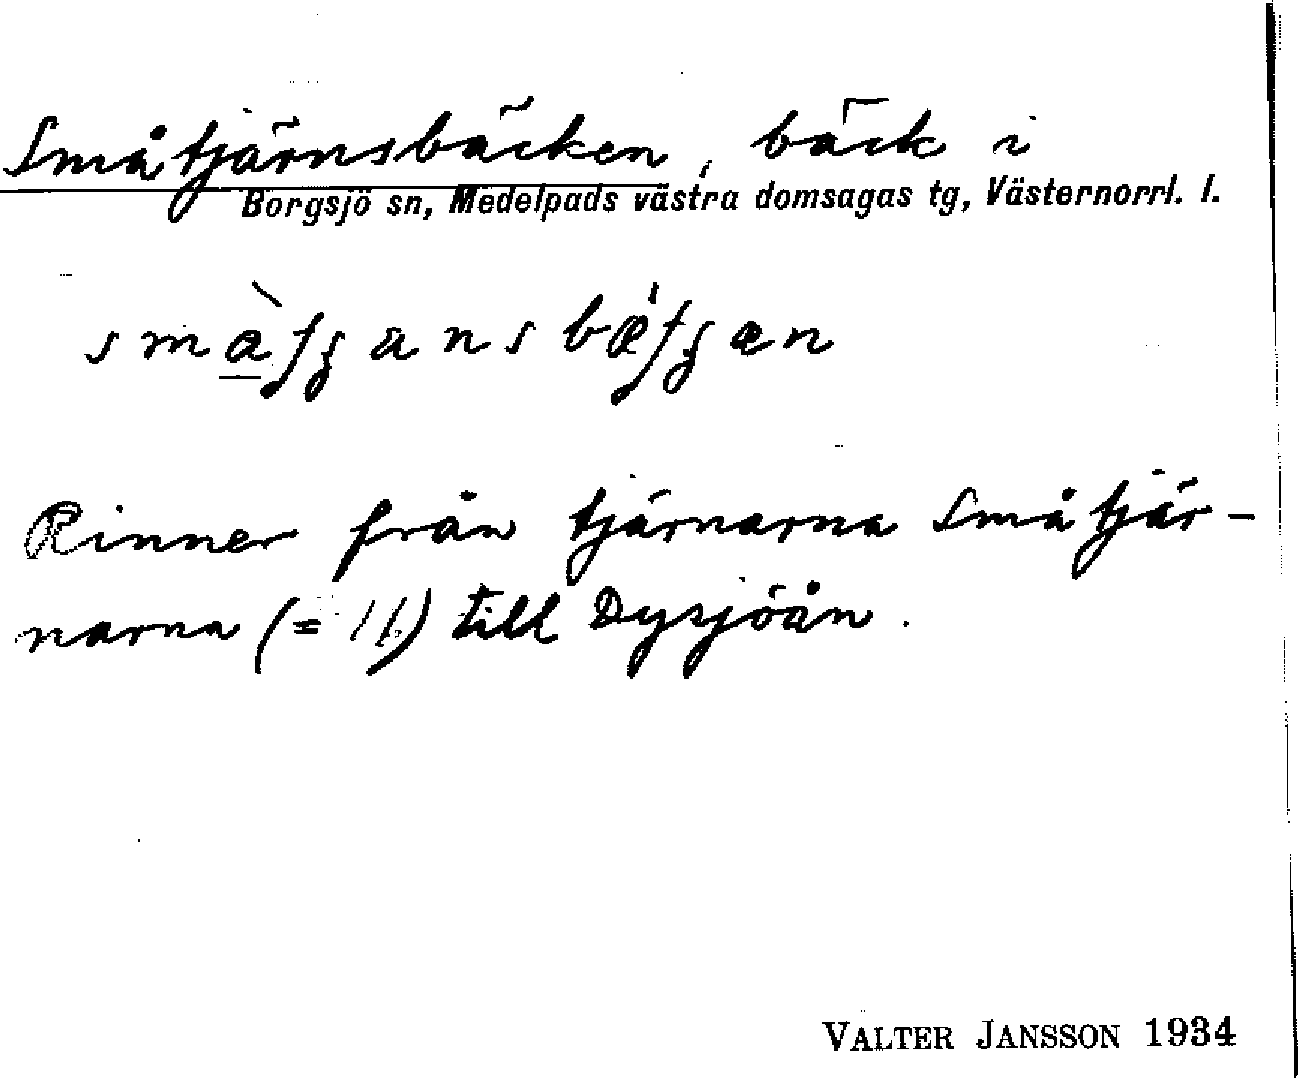 Småtjärnsbäcken, bäck i
Borgsjö sn, Medelpads västra domsagas tg, Västernorrl. l.
Rinner från tjärnarna Småtjär-
narna (= 11) till Dysjöån.
VALTER JANSSON 1934